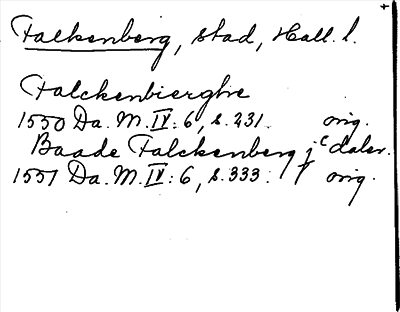 Falkenberg, stad, Hall. l.
Falckenbierghe
1550 Da. M. IV: 6, s. 231. orig.
Baade Falckenberg j c daler.
1551 Da. M. IV: 6, s. 333. orig.